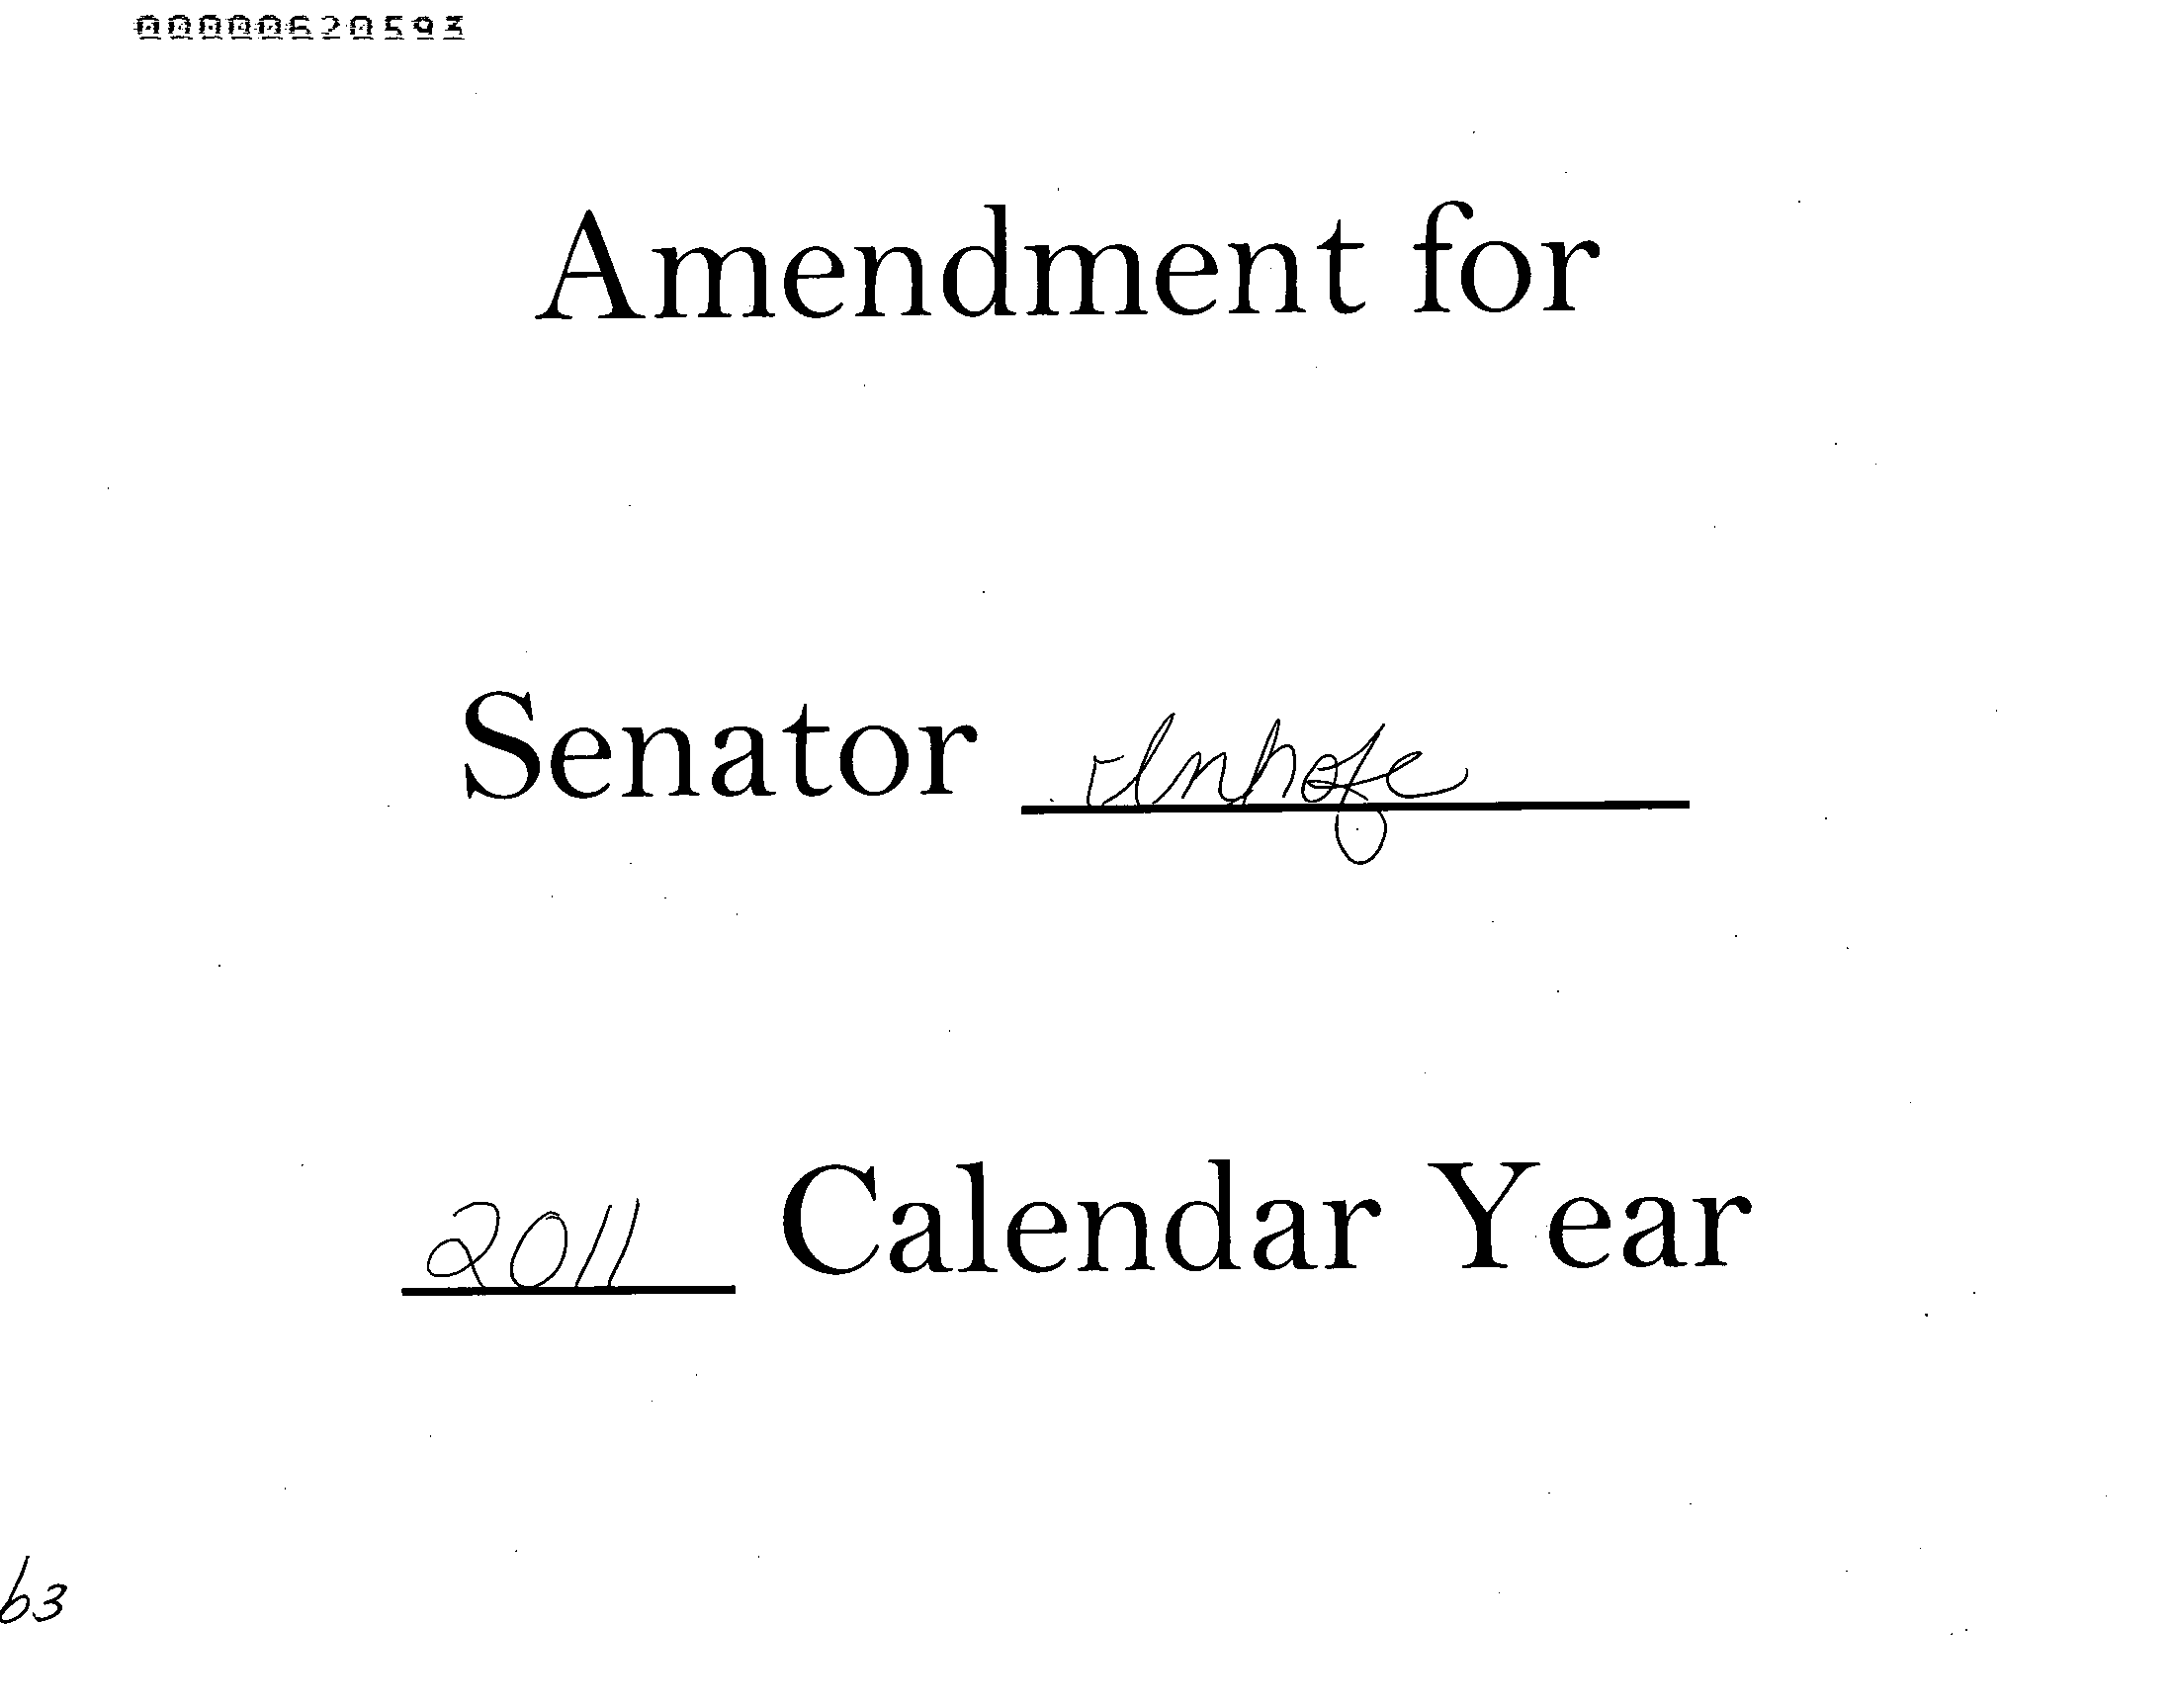 000000620593
Amendment for
Senator Inhofe
2011 Calendar Year
63